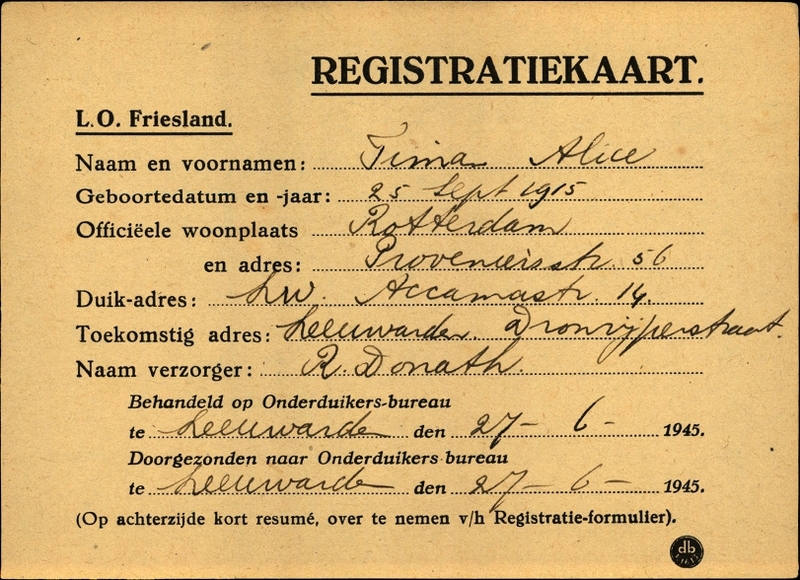 REGISTRATIEKAART.
L.O. Friesland.
Naam en voornamen: Tima Alice
Geboortedatum en -jaar: 25 Sept 1915
Officiëele woonplaats Rotterdam
en adres: Provenierstr. 56
Duik-adres: Lw. Accamastr. 14.
Toekomstig adres: Leeuwarden. Dronrijperstraat.
Naam verzorger: R. Donath.
Behandeld op Onderduikers-bureau
te Leeuwarden den 27-6-1945.
Doorgezonden naar Onderduikers-bureau
te Leeuwarden den 27-6-1945.
(Op achterzijde kort resumé, over te nemen v/h Registratie-formulier).
db